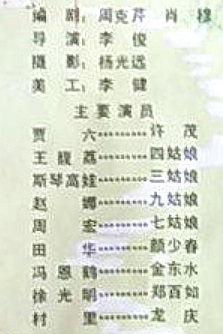 编 剧：周克芹 肖 穆
导 演：李 俊
摄 影：杨光远
美 工：李 健
主要演员
贾 六………许 茂
王馥荔………四姑娘
斯琴高娃………三姑娘
赵 娜………九姑娘
周 宏………七姑娘
田 华………颜少春
冯恩鹤………金东水
徐光明………郑百如
村 里………龙 庆